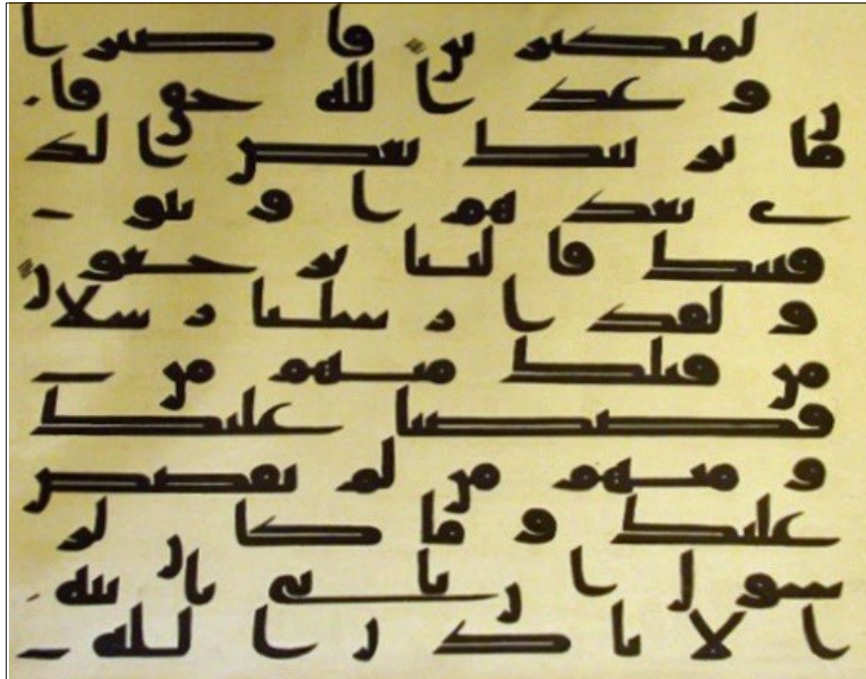 لمتكبرين فاصبر ا
ن وعد الله حق فا
ما نرينك بعض الذ
ي نعدهم او نتو
فينك فالينا يرجعون
ولقد ارسلنا رسلا
من قبلك منهم من
قصصنا عليك
ومنهم من لم نقصص
عليك وما كان لر
سول ان ياتي باية
الا باذن الله